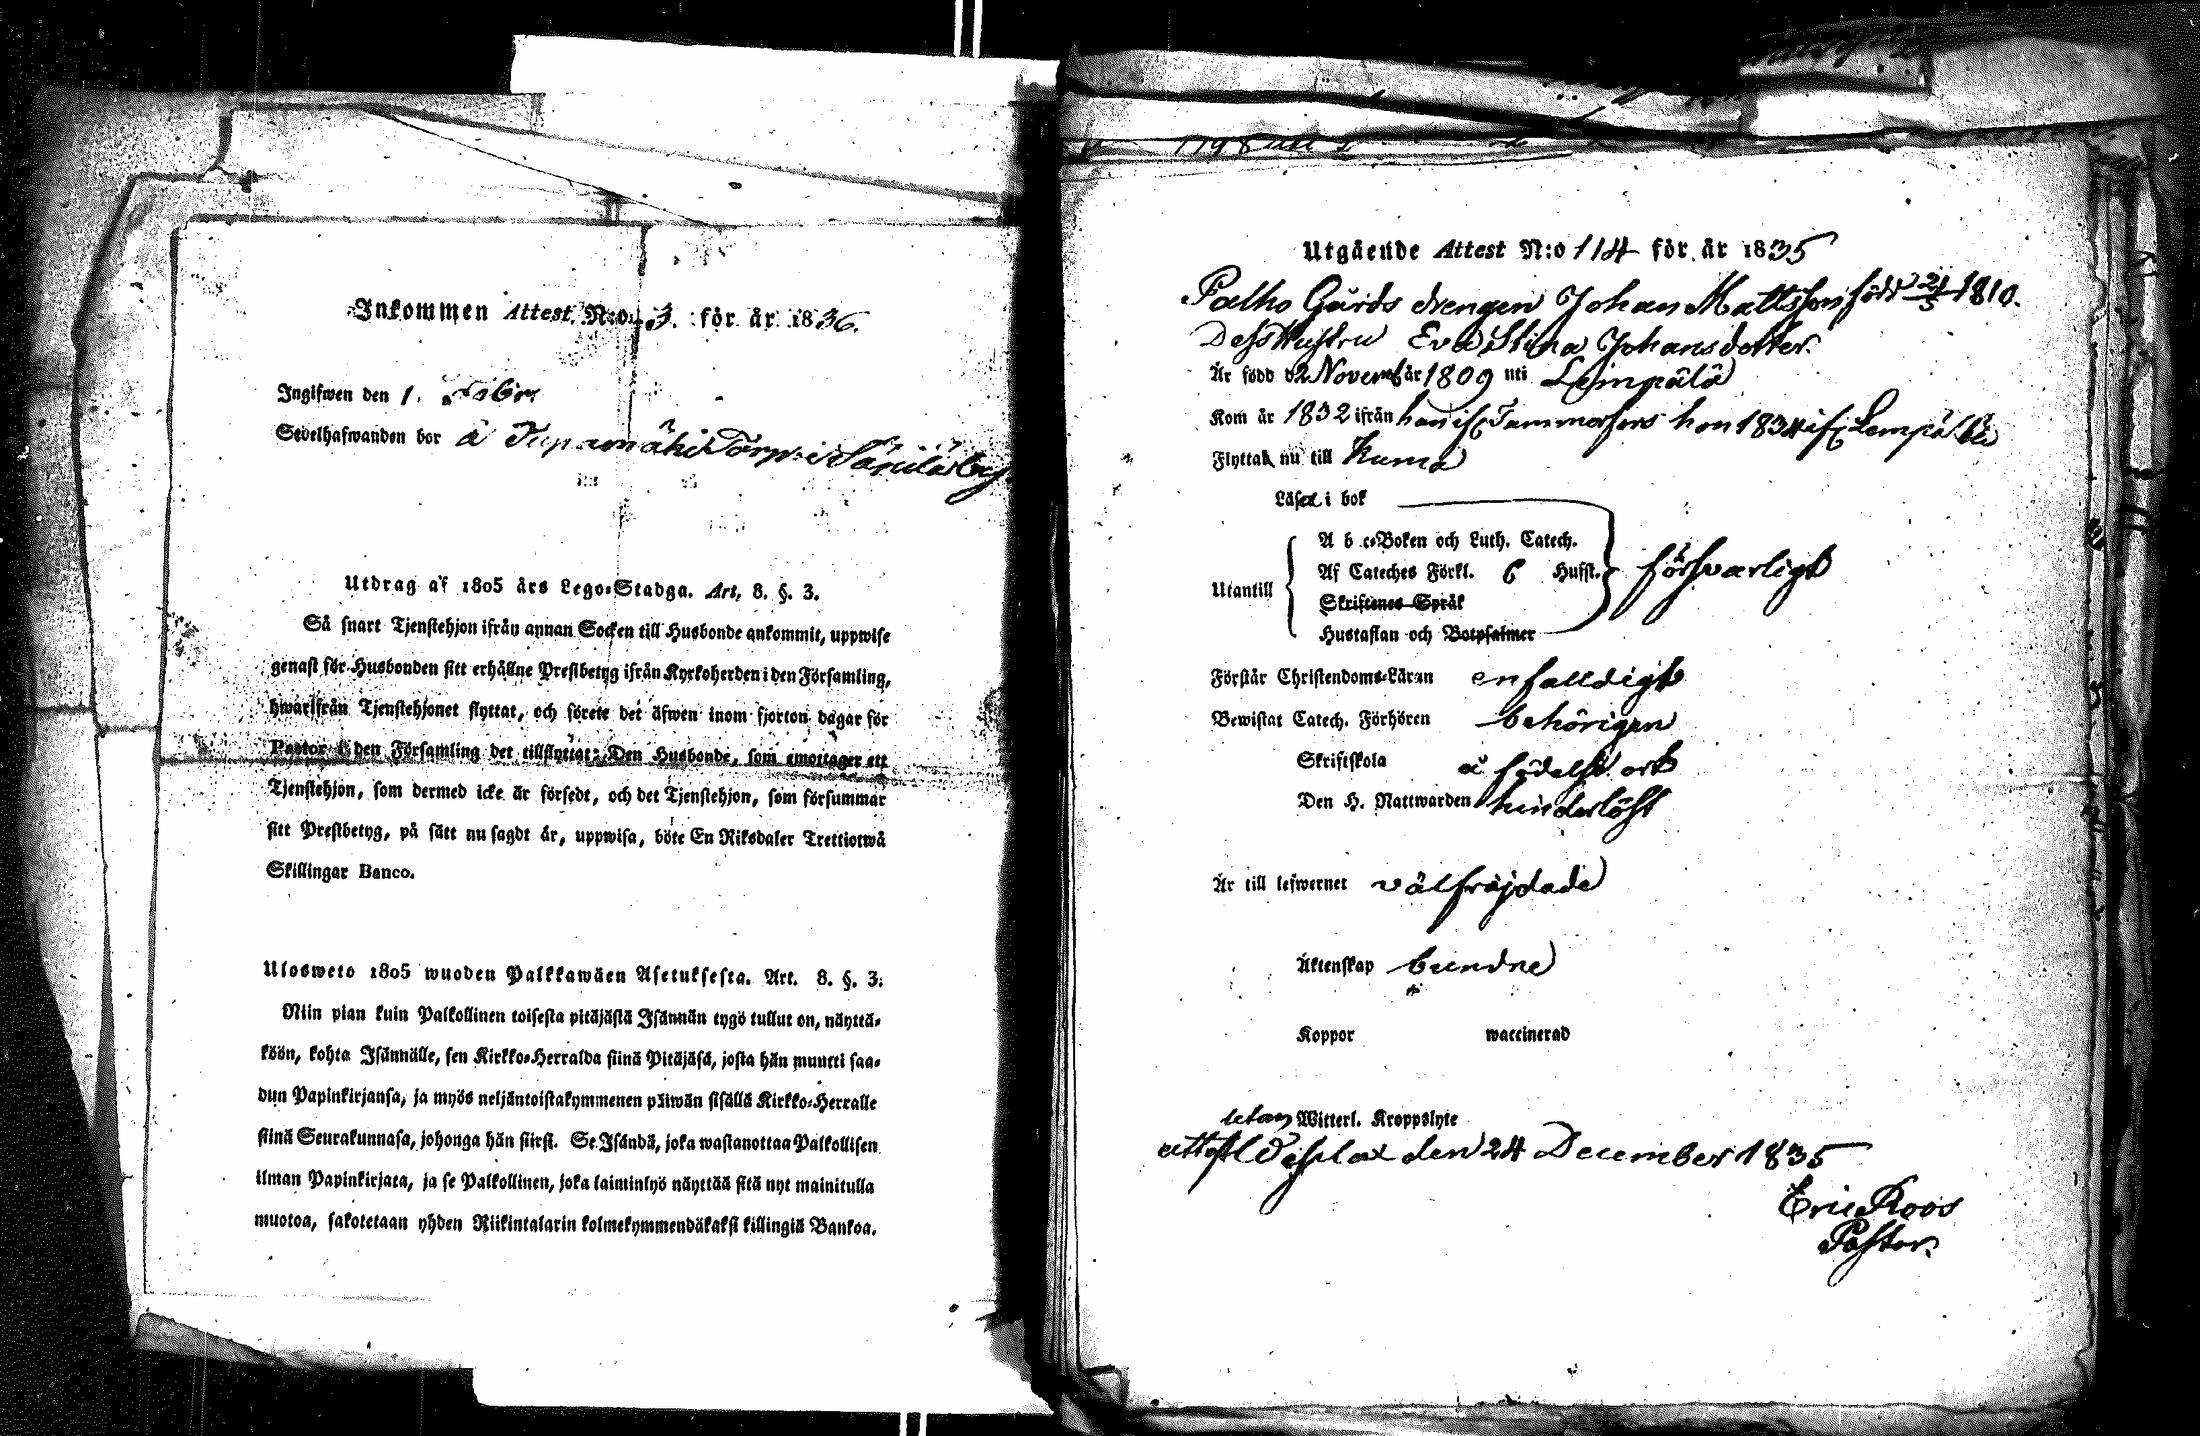 Inkommen Attest N:o 3. för år 1836.
Ingifwen den 1. Febr.
Sedelhafwanden bor å Torp i
Utdrag af 1805 års Lego-Stadga. Art, 8. §. 3.
Så snart Tjenstehjon ifrån annan Socken till Husbonde ankommit, uppwise
genast för Husbonden sitt erhållne Prestbetyg ifrån Kyrkoherden i den Församling,
hwarifrån Tjenstehjonet flyttat, och förete det äfwen inom fjorton dagar för
Pastor i den Församling det tillflyttat: Den Husbonde, som emottager ett
Tjenstehjon, som dermed icke är försedt, och det Tjenstehjon, som försummar
sitt Prestbetyg, på sätt nu sagdt är, uppwisa, böte En Riksdaler Trettiotwå
Skillingar Banco.
Ulosweto 1805 wuoden Palkkawäen Asetuksesta. Art. 8. §. 3.
Niin pian kuin Palkollinen toisesta pitäjästä Isännän tygö tullut on, näyttä-
köön, kohta Isännälle, sen Kirkko-Herralda siinä Pitäjäsä, josta hän muutti saa-
dun Papinkirjansa, ja myös neljäntoistakymmenen päiwän sisällä Kirkko-Herralle
siinä Seurakunnasa, johonga hän siirst. Se Isändä, joka wastanottaa Palkollisen
ilman Papinkirjata, ja se Palkollinen, joka laiminlyö näyttää sitä nyt mainitulla
muotoa, sakotetaan yhden Riikintalarin kolmekymmendäkaksi killingiä Bankoa.
Utgående Attest N:o 114 för år 1835
Palho Gårds drengen Johan Mattsson född 21/3 1810.
Dess Hustru Eva Stina Johansdotter.
Är född d 2 Novemb år 1809 uti Lempälä
Kom år 1832 ifrån han if. Tammerfors hon 1834 if. Lempälä
Flyttar nu till Kumo
Läsa i bok
A b c-Boken och Luth. Catech.
Af Cateches Förkl. 6 Hufst. försvarligt
Utantill
Skriftenes Språk
Hustaflan och Botpsalmer
Förstår Christendoms-Läran enfaldigt
Bewistat Catech. Förhören behörigen
Skriftskola å födelse ort
Den H. Nattwarden hinderlöst
Är till lefwernet välfräjdade
Äktenskap bundne
Koppor waccinerad
utan Witterl. Kroppslyte
den 24 December 1835
Eric Roos
Pastor.